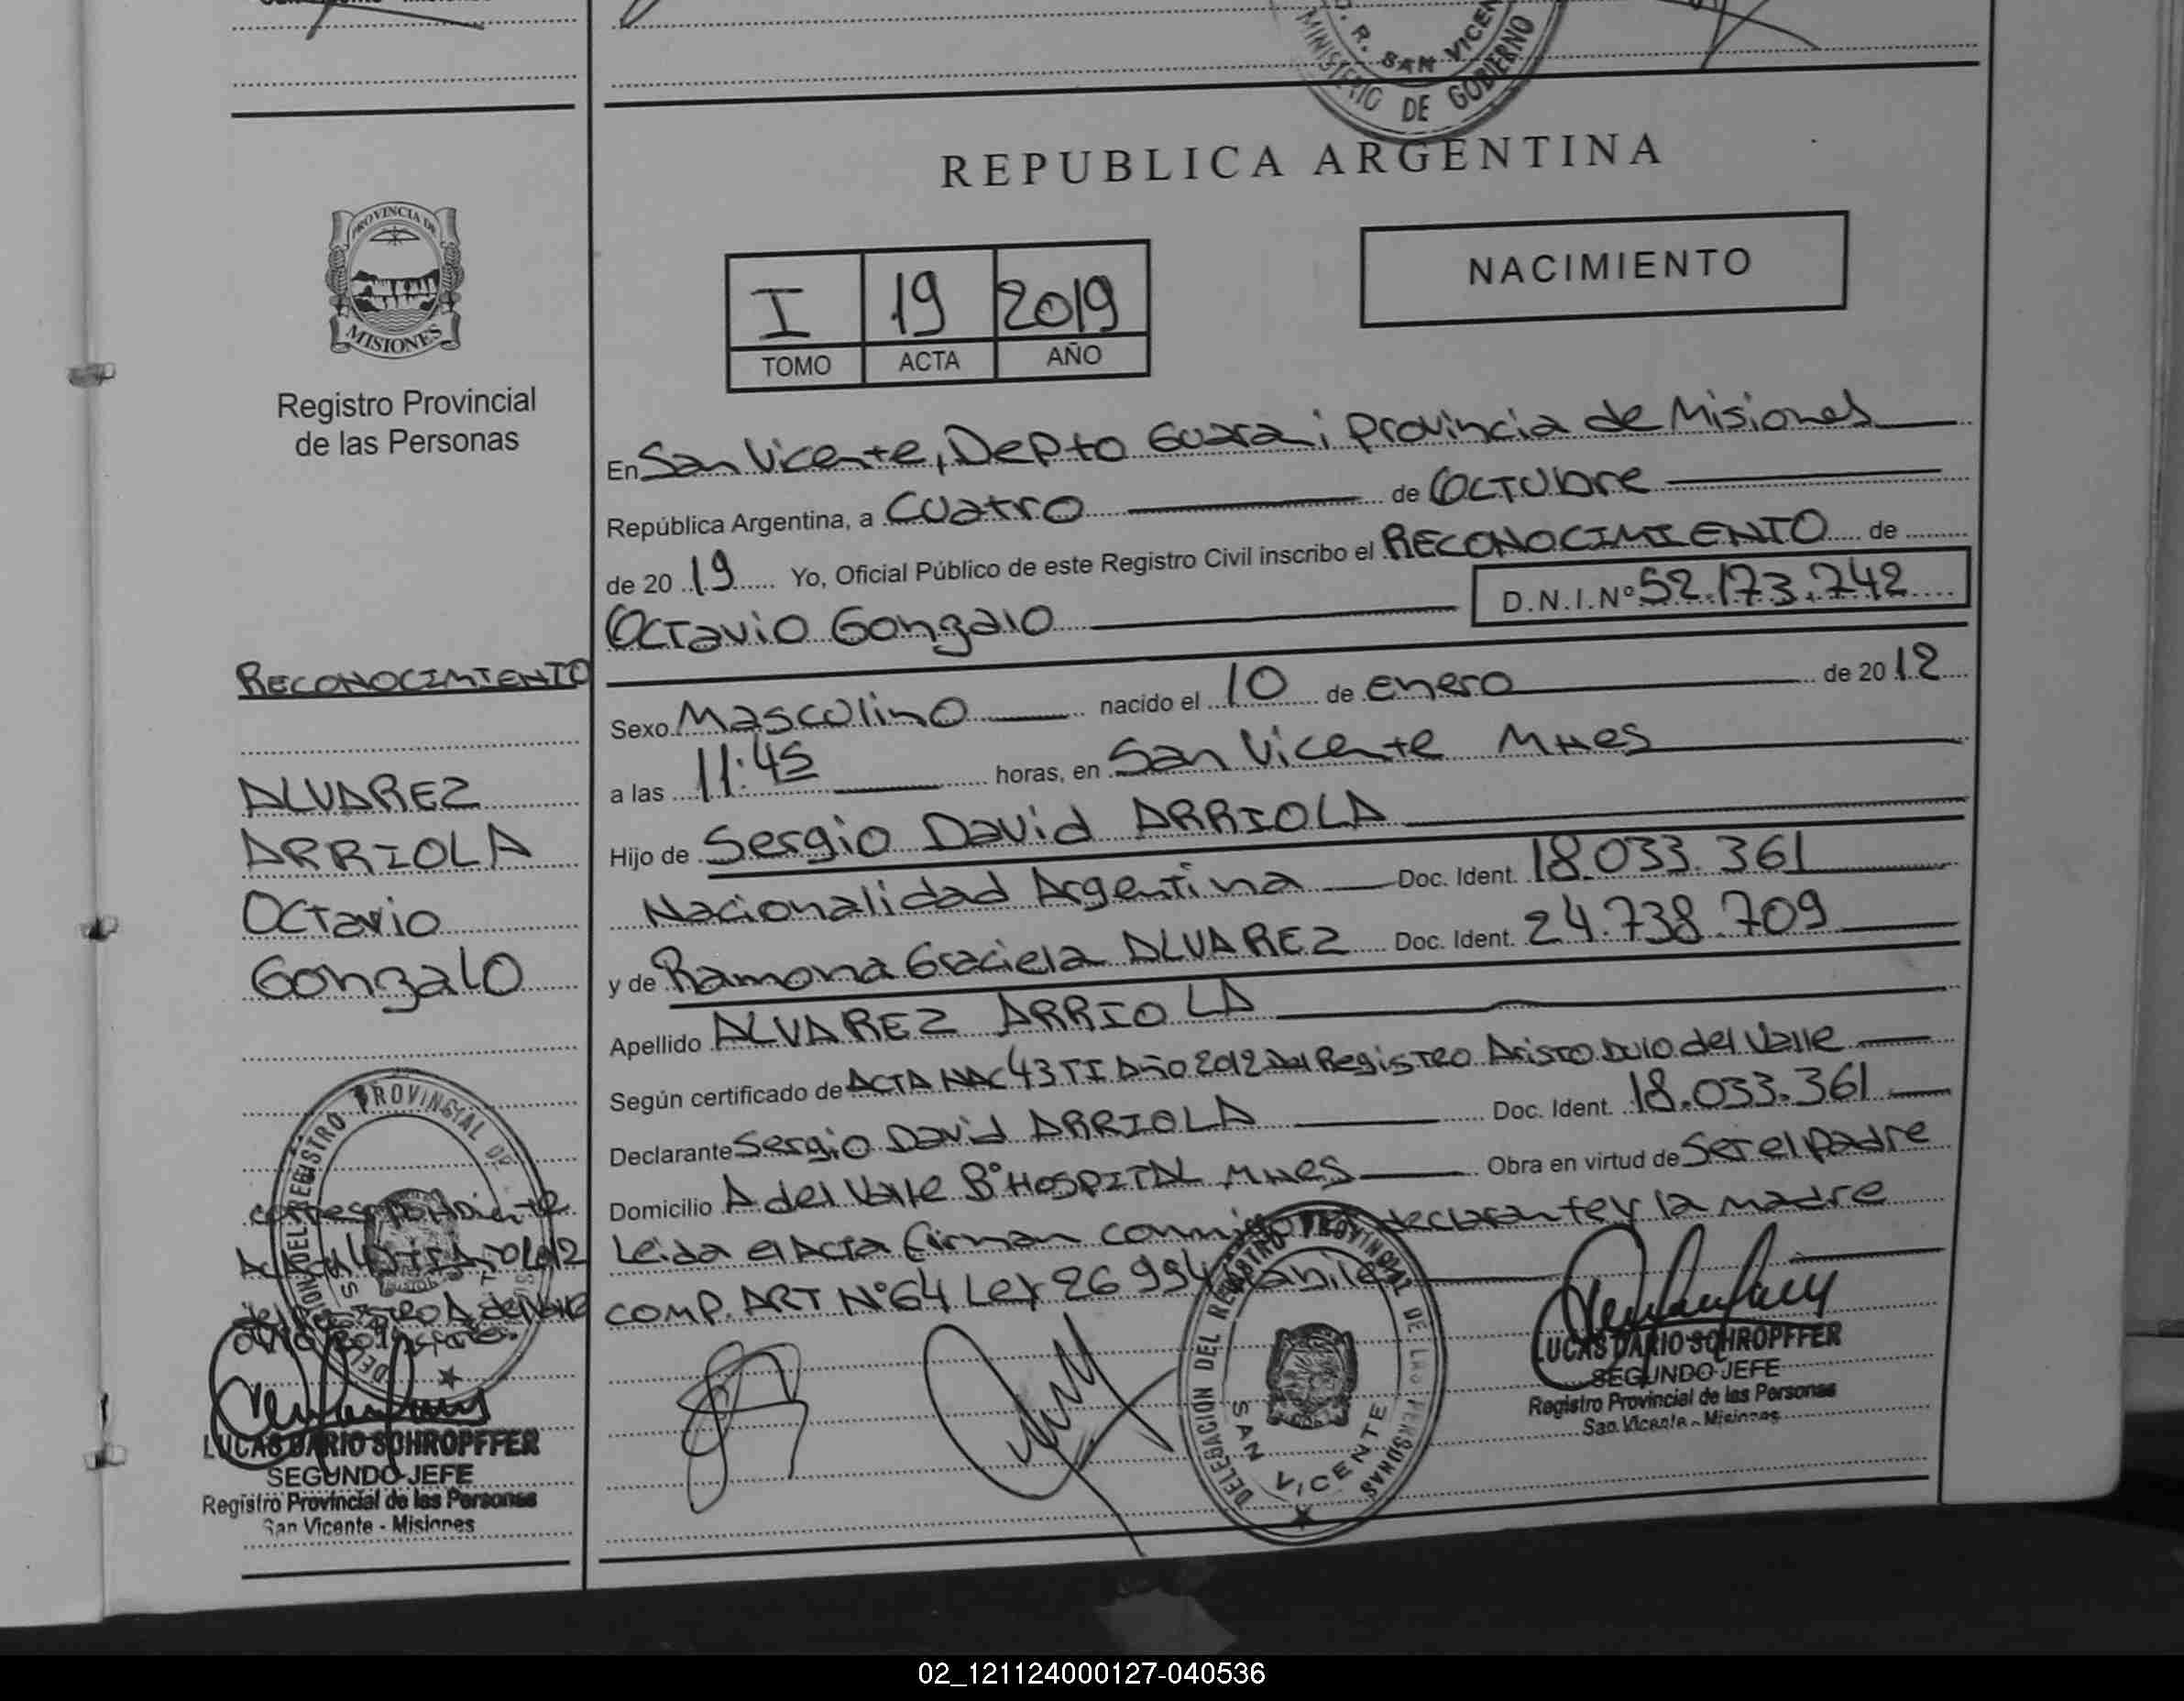 D. R. SAN VICEN
MINISTERIO DE GOBIERNO
PROVINCIA DE
MISIONES
Registro Provincial
de las Personas
RECONOCIMIENTO
ALVAREZ
ARRIOLA
Octavio
Gonzalo
correspondiente
LUCAS DARIO SCHROPFFER
SEGUNDO JEFE
Registro Provincial de las Personas
San Vicente - Misiones
REPUBLICA ARGENTINA
I 19 2019
TOMO ACTA AÑO
NACIMIENTO
En San Vicente, Depto Guarani Provincia de Misiones
República Argentina, a Cuatro de Octubre
de 20 19 Yo, Oficial Público de este Registro Civil inscribo el RECONOCIMIENTO de
Octavio Gonzalo D.N.I.Nº 52.173.742
Sexo Mascolino nacido el 10 de enero de 20 12
a las 11:45 horas, en San Vicente Mnes
Hijo de Sergio David ARRIOLA
Nacionalidad Argentina Doc. Ident. 18.033.361
y de Ramona Graciela ALVAREZ Doc. Ident. 24.738.709
Apellido ALVAREZ ARRIOLA
Según certificado de ACTA NAC 43 TI Año 2012 Del Registro Aristobulo del Valle
Declarante Sergio David ARRIOLA Doc. Ident. 18.033.361
Domicilio A del Valle Bº HOSPITAL Mnes Obra en virtud de Ser el padre
Leida el Acta firman conmigo declarante y la madre
COMP. ART Nº 64 Ley 26 994
DELEGACION DEL REGISTRO PROVINCIAL DE LAS PERSONAS
SAN VICENTE
LUCAS DARIO SCHROPFFER
SEGUNDO JEFE
Registro Provincial de las Personas
San Vicente - Misiones
02_121124000127-040536